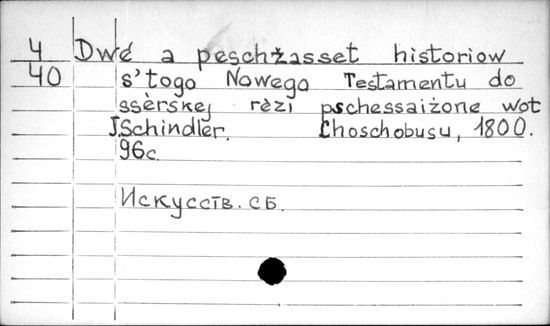 4 Dwé a peschżasset historiow
40 s'togo Nowego Testamentu do
ssèrskej rèzi pschessaiżone wot
J.Schindler. Choschobusu, 1800.
96c.
Искусств. сб.